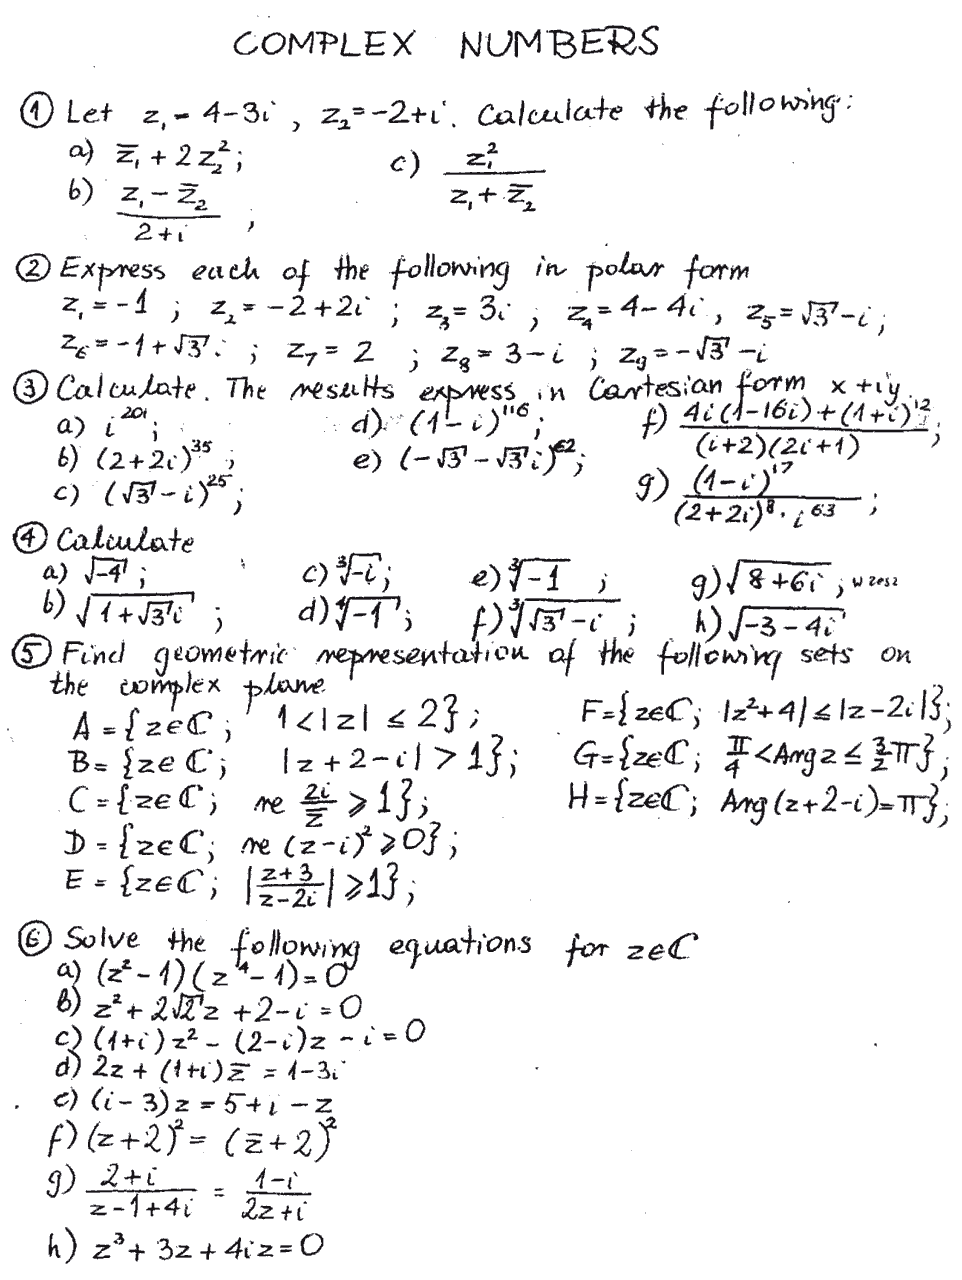 COMPLEX NUMBERS
① Let z₁ = 4-3i , z₂=-2+i. Calculate the following:
a) z̄₁ + 2z₂²;
c) z₁² / (z₁ + z̄₂)
b) (z₁ - z̄₂) / (2+i) ;
② Express each of the following in polar form
z₁ = -1 ; z₂ = -2+2i ; z₃ = 3i ; z₄ = 4-4i , z₅ = √3-i ;
z₆ = -1+√3i ; z₇ = 2 ; z₈ = 3-i ; z₉ = -√3-i
③ Calculate. The results express in Cartesian form x+iy.
a) i²⁰¹ ;
d) (1-i)¹¹⁶ ;
f) (4i(1-16i)+(1+i)¹²) / ((i+2)(2i+1)) ;
b) (2+2i)³⁵ ;
e) (-√3-√3i)⁶² ;
c) (√3-i)²⁵ ;
g) (1-i)¹⁷ / ((2+2i)⁸ · i⁶³) ;
④ Calculate
a) √-4 ;
c) ³√-i ;
e) ³√-1 ;
g) √8+6i ; w zesz
b) √1+√3i ;
d) ⁴√-1 ;
f) ³√√3-i ;
h) √-3-4i
⑤ Find geometric representation of the following sets on
the complex plane
A = {z∈ℂ ; 1<|z| ≤ 2} ;
F={z∈ℂ; |z²+4| ≤ |z-2i|};
B = {z∈ℂ ; |z+2-i| > 1} ;
G={z∈ℂ; π/4 <Arg z ≤ 3/2 π};
C = {z∈ℂ ; re 2i/z̄ ⩾ 1};
H={z∈ℂ; Arg(z+2-i)=π};
D = {z∈ℂ; re (z-i)² ⩾ 0} ;
E = {z∈ℂ; |(z+3)/(z-2i)| ⩾ 1} ;
⑥ Solve the following equations for z∈ℂ
a) (z²-1)(z⁴-1)=0
b) z² + 2√2z + 2-i = 0
c) (1+i)z² - (2-i)z - i = 0
d) 2z + (1+i)z̄ = 1-3i
e) (i-3)z = 5+i-z
f) (z+2)² = (z̄+2)²
g) (2+i) / (z-1+4i) = (1-i) / (2z+i)
h) z³ + 3z + 4iz = 0